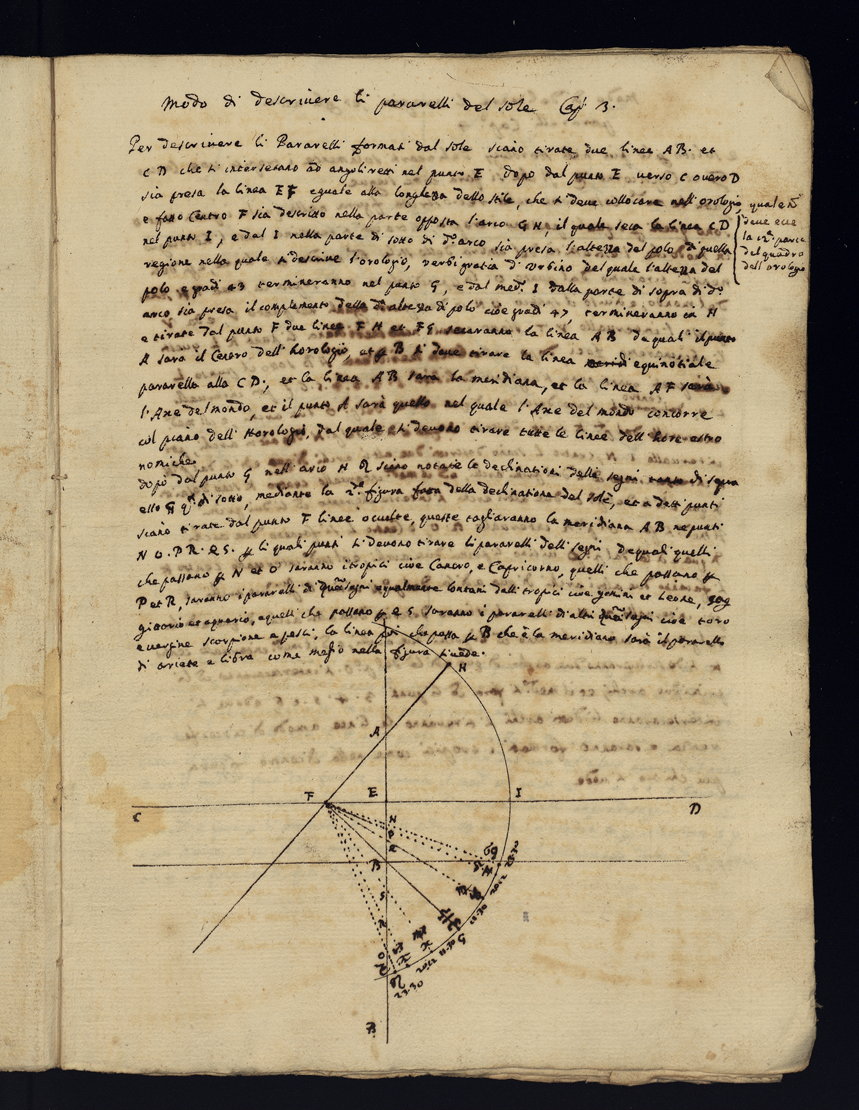 Modo di descrivere li pararelli del sole Cap 3.
Per descrivere li Pararelli formati dal sole siano tirate due linee AB. et
CD che si intersecano ad angoli retti nel punto E dopo dal punto E verso C overo D
sia presa la linea EF eguale alla longhezza dello stile, che si deve collocare nell'orologio,
quale
deve
la 12ª parte
del quadro
dell'orologio
e fatto Centro F sia descritto nella parte opposta l'arco G H, il quale seca la linea CD
nel punto I, e dal I nella parte di sotto di dº arco sia presa l'altezza del polo di quella
regione nella quale si descrive l'orologio, verbi gratia d'Urbino del quale l'altezza del
polo e gradi 43 termineranno nel punto G, e dal medº I dalla parte di sopra di dº
arco sia presa il complemento della dª altezza di polo cioè gradi 47, termineranno in H
e tirate dal punto F due linee F H et FG secaranno la linea AB de quali il punto
A sarà il Centro dell'horologio, et p B si deve tirare la linea equinotiale
pararella alla CD, et la linea AB sarà la meridiana, et la linea AF sarà
l'Axe del mondo, et il punto A sarà quello nel quale l'Axe del mondo concorre
col piano dell'Horologio, dal quale si devono tirare tutte le linee dell'hore astro
nomiche
dopo dal punto G nell'arco siano notate le declinationi delli segni tanto di sopra
di sotto, mediante la 2ª figura fatta della declinatione del sole, et a detti punti
siano tirate dal punto F linee oculte, queste tagliaranno la meridiana AB ne punti
N O. P R. Q S. p li quali punti si devono tirare li pararelli dell'segni de quali quelli
che passano p N et O saranno i tropici cioè Cancro, e Capricorno, quelli che passano p
P et R, saranno i pararelli di segni egualmente lontani dalli tropici cioè gemini et Leone, sag
gittario et aquario, e quelli che passano p Q S saranno i pararelli di altri segni cioè toro
e vergine scorpione e pesci, la linea poi che passa p B che è la meridiana sarà il pararello
di ariete e libra come meglio nella figura si vede.
H
A
F E I
C D
N
P
Q
B
S
R
O
G
♋
♌
♏
♎
23·30
20·12
11·30
11·30
20·12
23·30
B